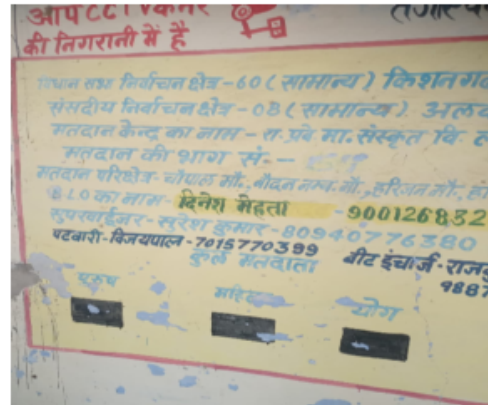 आप CCTV कैमरे
की निगरानी में है
विधान सभा निर्वाचन क्षेत्र-60 (सामान्य) किशनगढ
संसदीय निर्वाचन क्षेत्र-08 (सामान्य) अलव
मतदान केन्द्र का नाम - रा. प्रवे. मा. संस्कृत वि.
मतदान की भाग सं.--
मतदान परिक्षेत्र-चौपाल मौ., हरिजन मौ.,
BLO का नाम- दिनेश मेहता -900126832
सुपरवाईजर-सुरेश कुमार-80940776380
पटवारी-विजयपाल-7015770399 बीट इंचार्ज-राजकु
9887
कुल मतदाता
पुरुष महिला योग